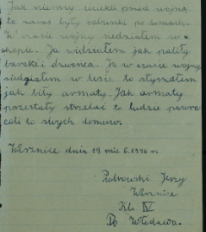 Jak niemcy uciekli przed wojną
to naraz były rabunki po domach.
W czasie wojny siedziałem w
okopie. Ja widziałem jak paliły
baraki i drzewca. Ja w czasie wojny
siedziałem w lesie to słyszałem
jak biły armaty. Jak armaty
przestały strzelać to ludzie powra
cali do swych domów.
dnia 19 m-c 6. 1946 r.
Piotrowski Jerzy
Kl. IV
P. Włodawa.